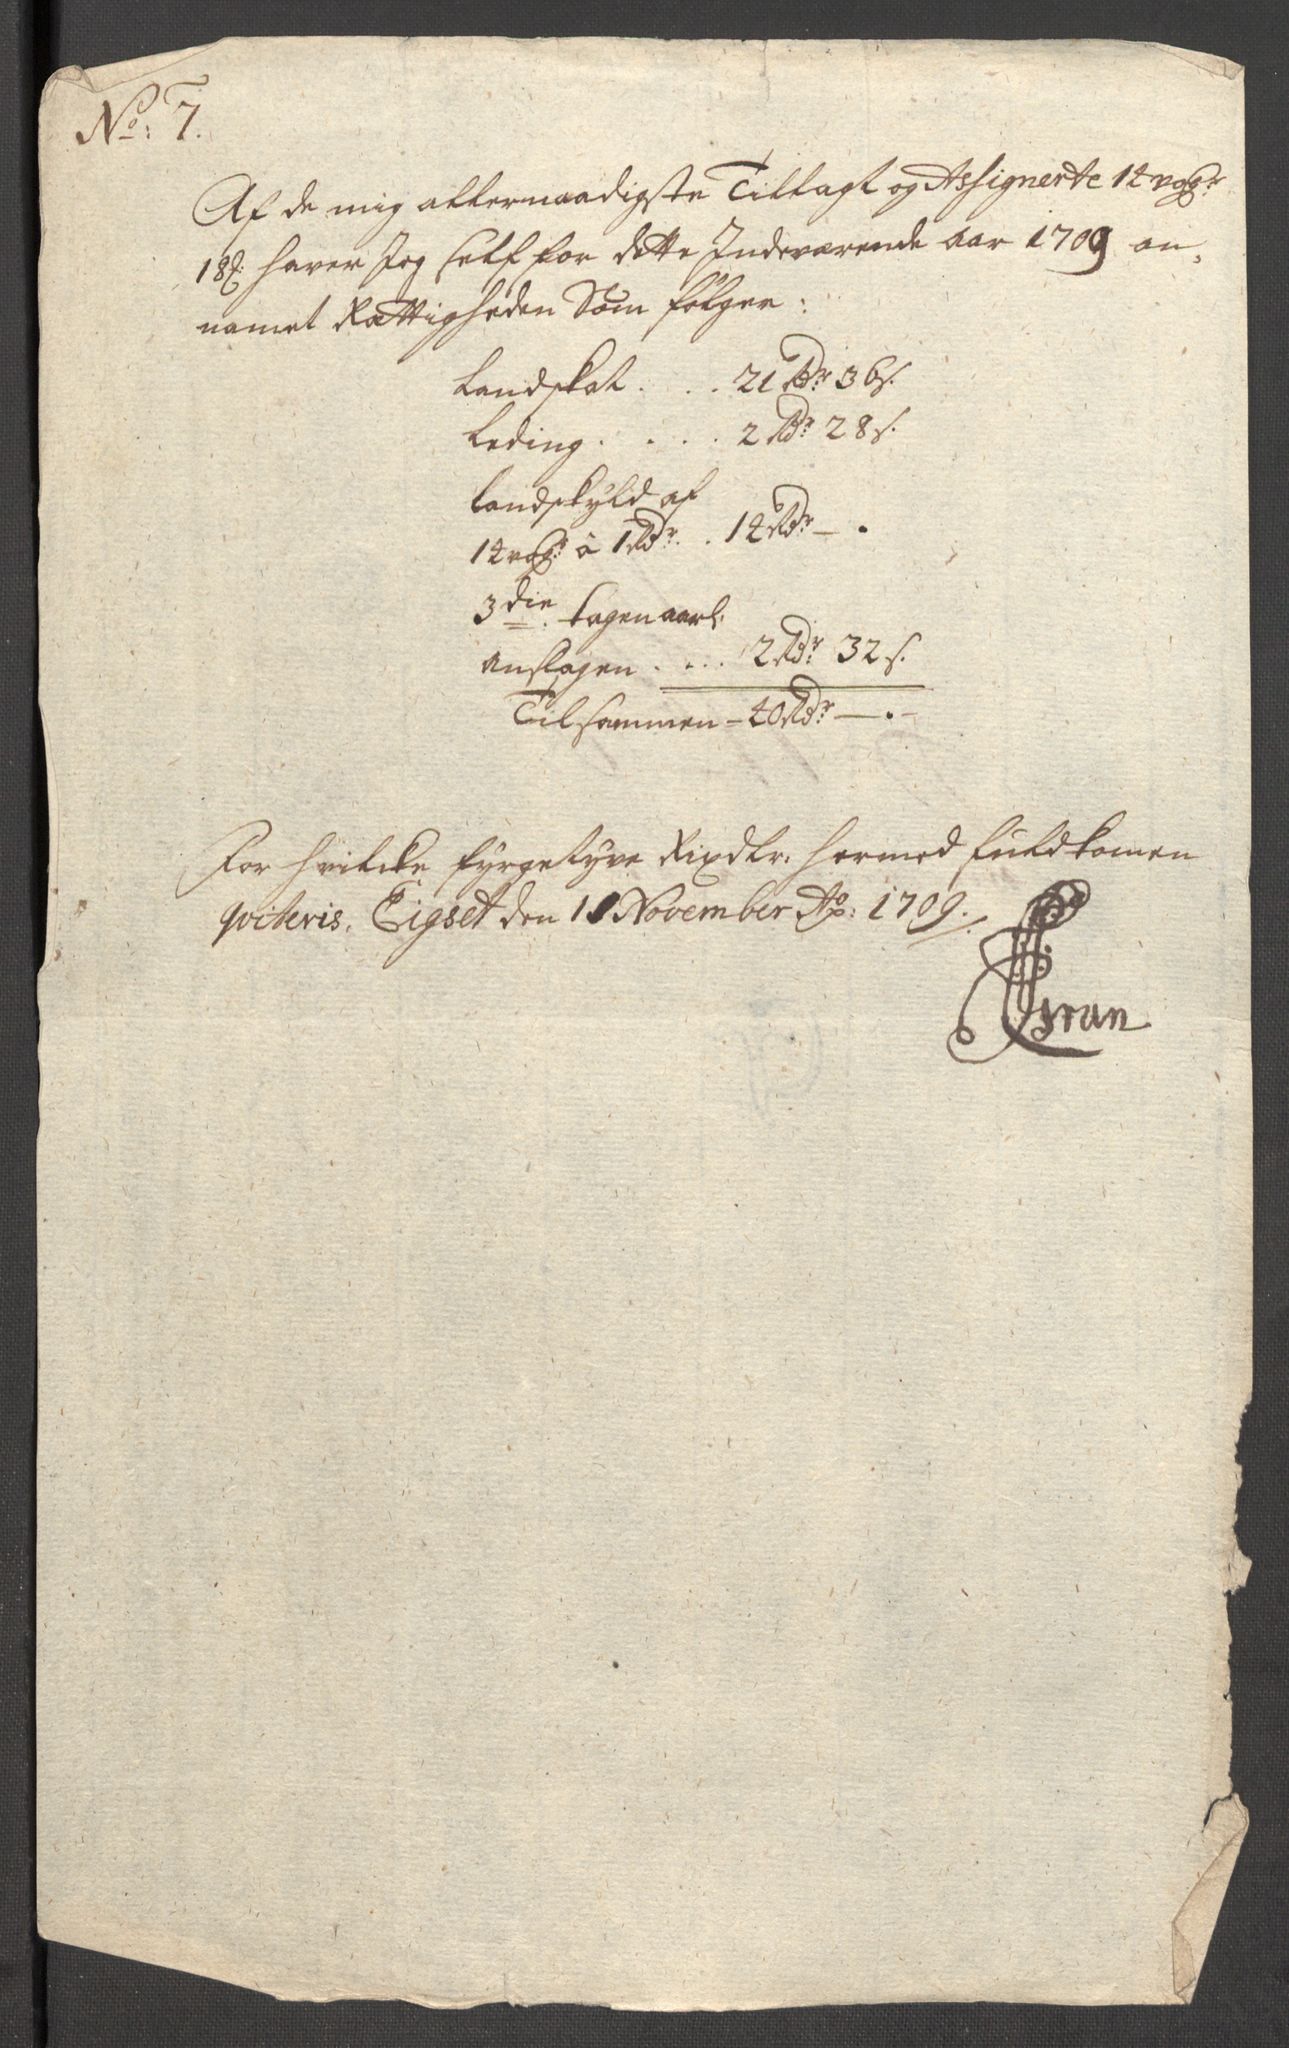 No: 7.
Af de mig allernaadigste Tillagt og Assignerte 14 vog:r
18 ℔: haver Jeg Self for dette Indeværende Aar 1709 an,
namet Rettigheden Som følger:
Landskat . . . 21 Rdr 36 s.
Leding . . . . 2 Rdr 28 s.
Landskyld af
14 vog:r â 1 Rdr. . 14 Rdr — .
3die tagen aarl:
anslagen . . . . 2 Rdr 32 s.
Tilsammen – 40 Rdr — . –
For hvilcke fyrgetyve Rixdlr. hermed fuldkomen
qviteris. Eigset den 11 November Ao: 1709.
Gran